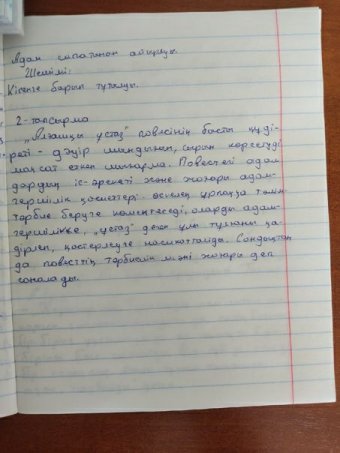 Адам сипатынан айырылу.
Шешімі:
Кісенге барып тұтылды.
2-тапсырма
"Алғашқы ұстаз" повесінің басты құді-
реті - дәуір шындығын, сырын көрсетуді
мақсат еткен шығарма. Повестегі адам
дардың іс-әрекеті және жоғары адам-
гершілік қасиеттері өскелең ұрпаққа тәлім-
тәрбие беруге көмектеседі, оларды адам-
гершілікке, "ұстаз" деген ұлы тұлғаны қа-
дірлеп, қастерлеуге насихаттайды. Сондықтан
да повестің тәрбиелік мәні жоғары деп
саналады.